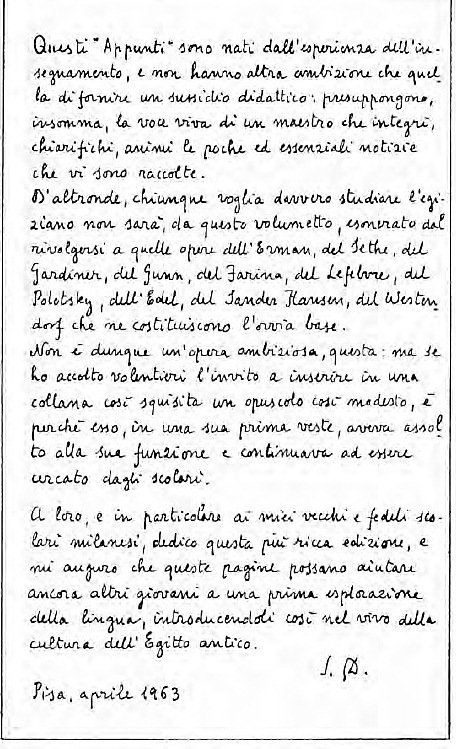 Questi "Appunti" sono nati dall'esperienza dell'in-
segnamento, e non hanno altra ambizione che quel
la di fornire un sussidio didattico: presuppongono,
insomma, la voce viva di un maestro che integri,
chiarifichi, animi le poche ed essenziali notizie
che vi sono raccolte.
D'altronde, chiunque voglia davvero studiare l'egi-
ziano non sarà, da questo volumetto, esonerato dal
rivolgersi a quelle opere dell'Erman, del Sethe, del
Gardiner, del Gunn, del Farina, del Lefebvre, del
Polotsky, dell'Edel, del Sander Hansen, del Westen-
dorf che ne costituiscono l'ovvia base.
Non è dunque un'opera ambiziosa, questa: ma se
ho accolto volentieri l'invito a inserire in una
collana così squisita un opuscolo così modesto, è
perché esso, in una sua prima veste, aveva assol
to alla sua funzione e continuava ad essere
cercato dagli scolari.
A loro, e in particolare ai miei vecchi e fedeli sco-
lari milanesi, dedico questa più ricca edizione, e
mi auguro che queste pagine possano aiutare
ancora altri giovani a una prima esplorazione
della lingua, introducendoli così nel vivo della
cultura dell'Egitto antico.
S. D.
Pisa, aprile 1963